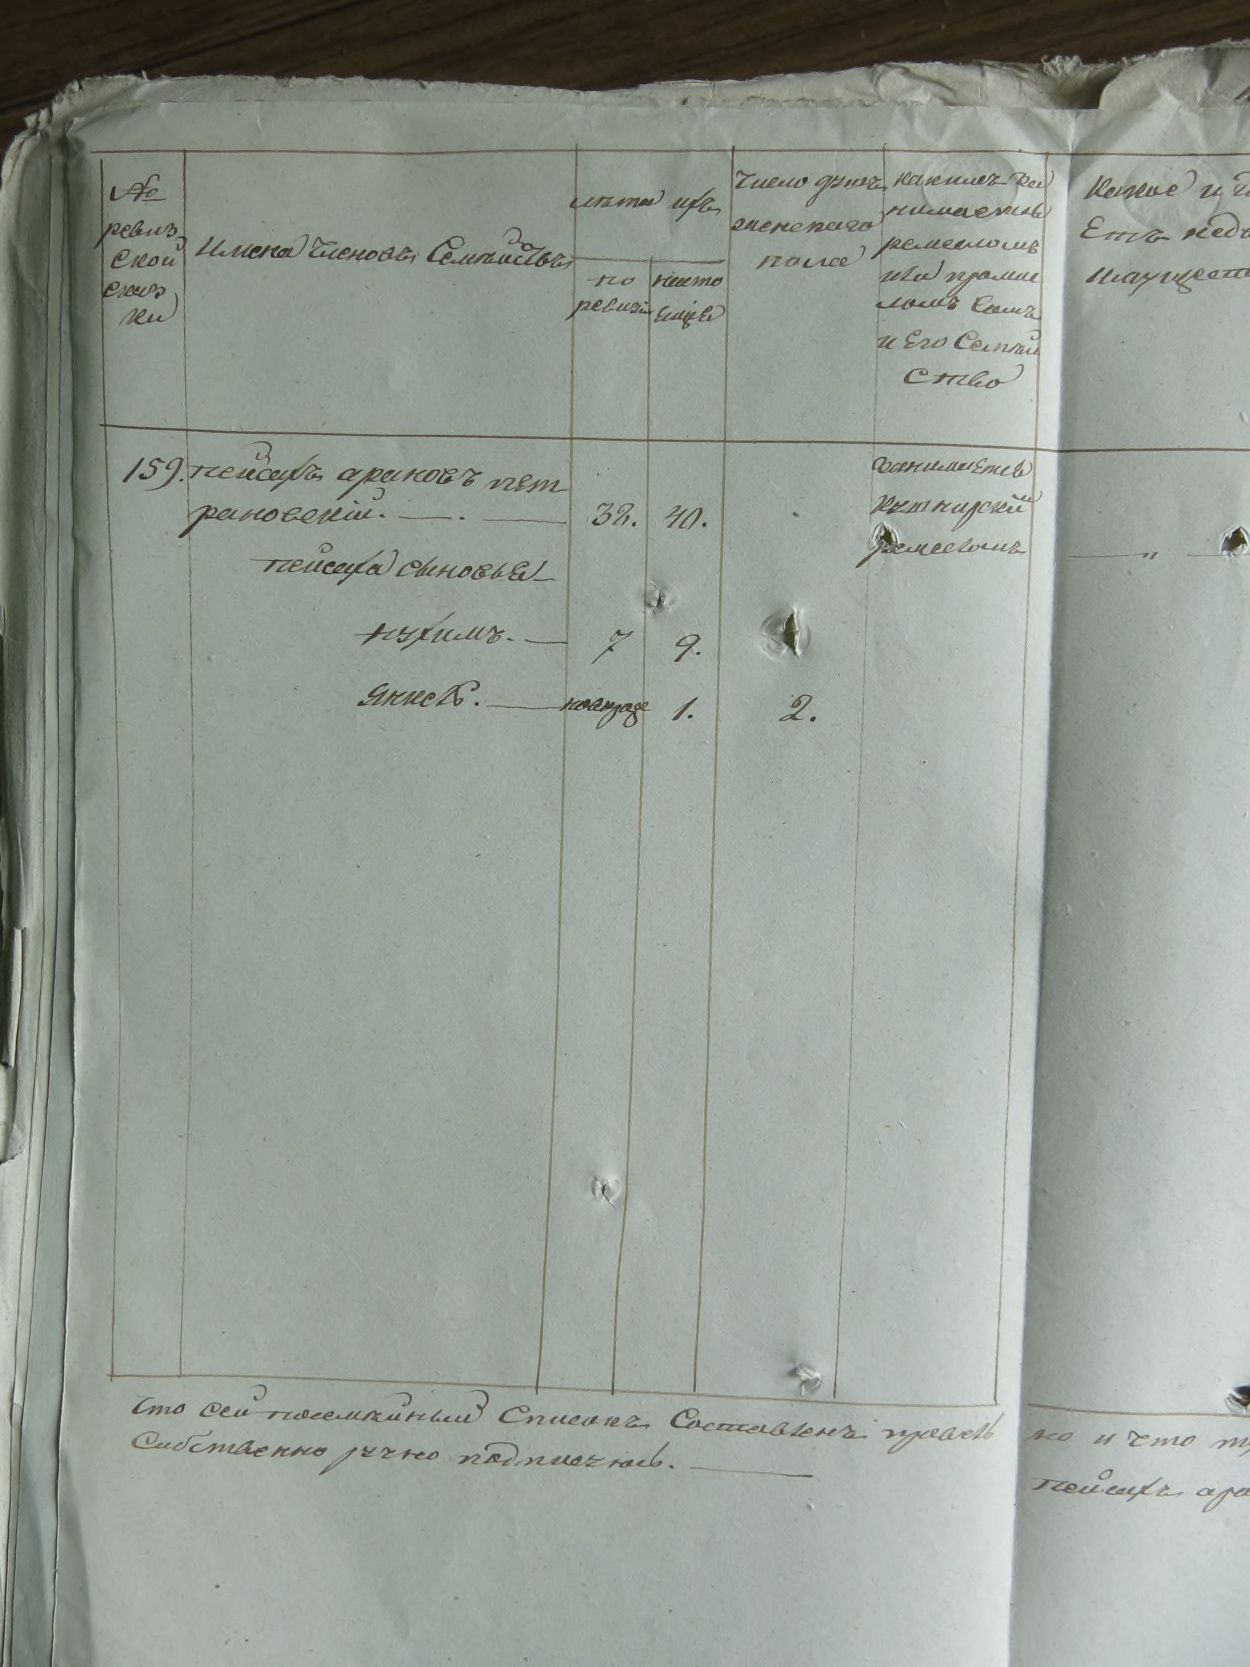 №
ревиз
ской
сказ
ки
Имена Членовъ Семѣйствъ
лѣта ихъ
по
ревизіи
насто
ящіе
Число душъ
женскаго
пола
какимъ за
нимается
ремесломъ
или промыс
ломъ Самъ
и Его Семѣй
ство
Какое и
Етъ нед
имущест
159. пейсахъ ароновъ пет
рановскій. — . — 38. 40.
занимается
кушнирскій
ремесломъ
— „ —
пейсаха сыновья
нухимъ. — 7 9.
Янкель. — 1. 2.
Что сей посемѣйный Списокъ Составленъ правель
но и что
Собственно ручно подписуюсь. —
пейсахъ аро